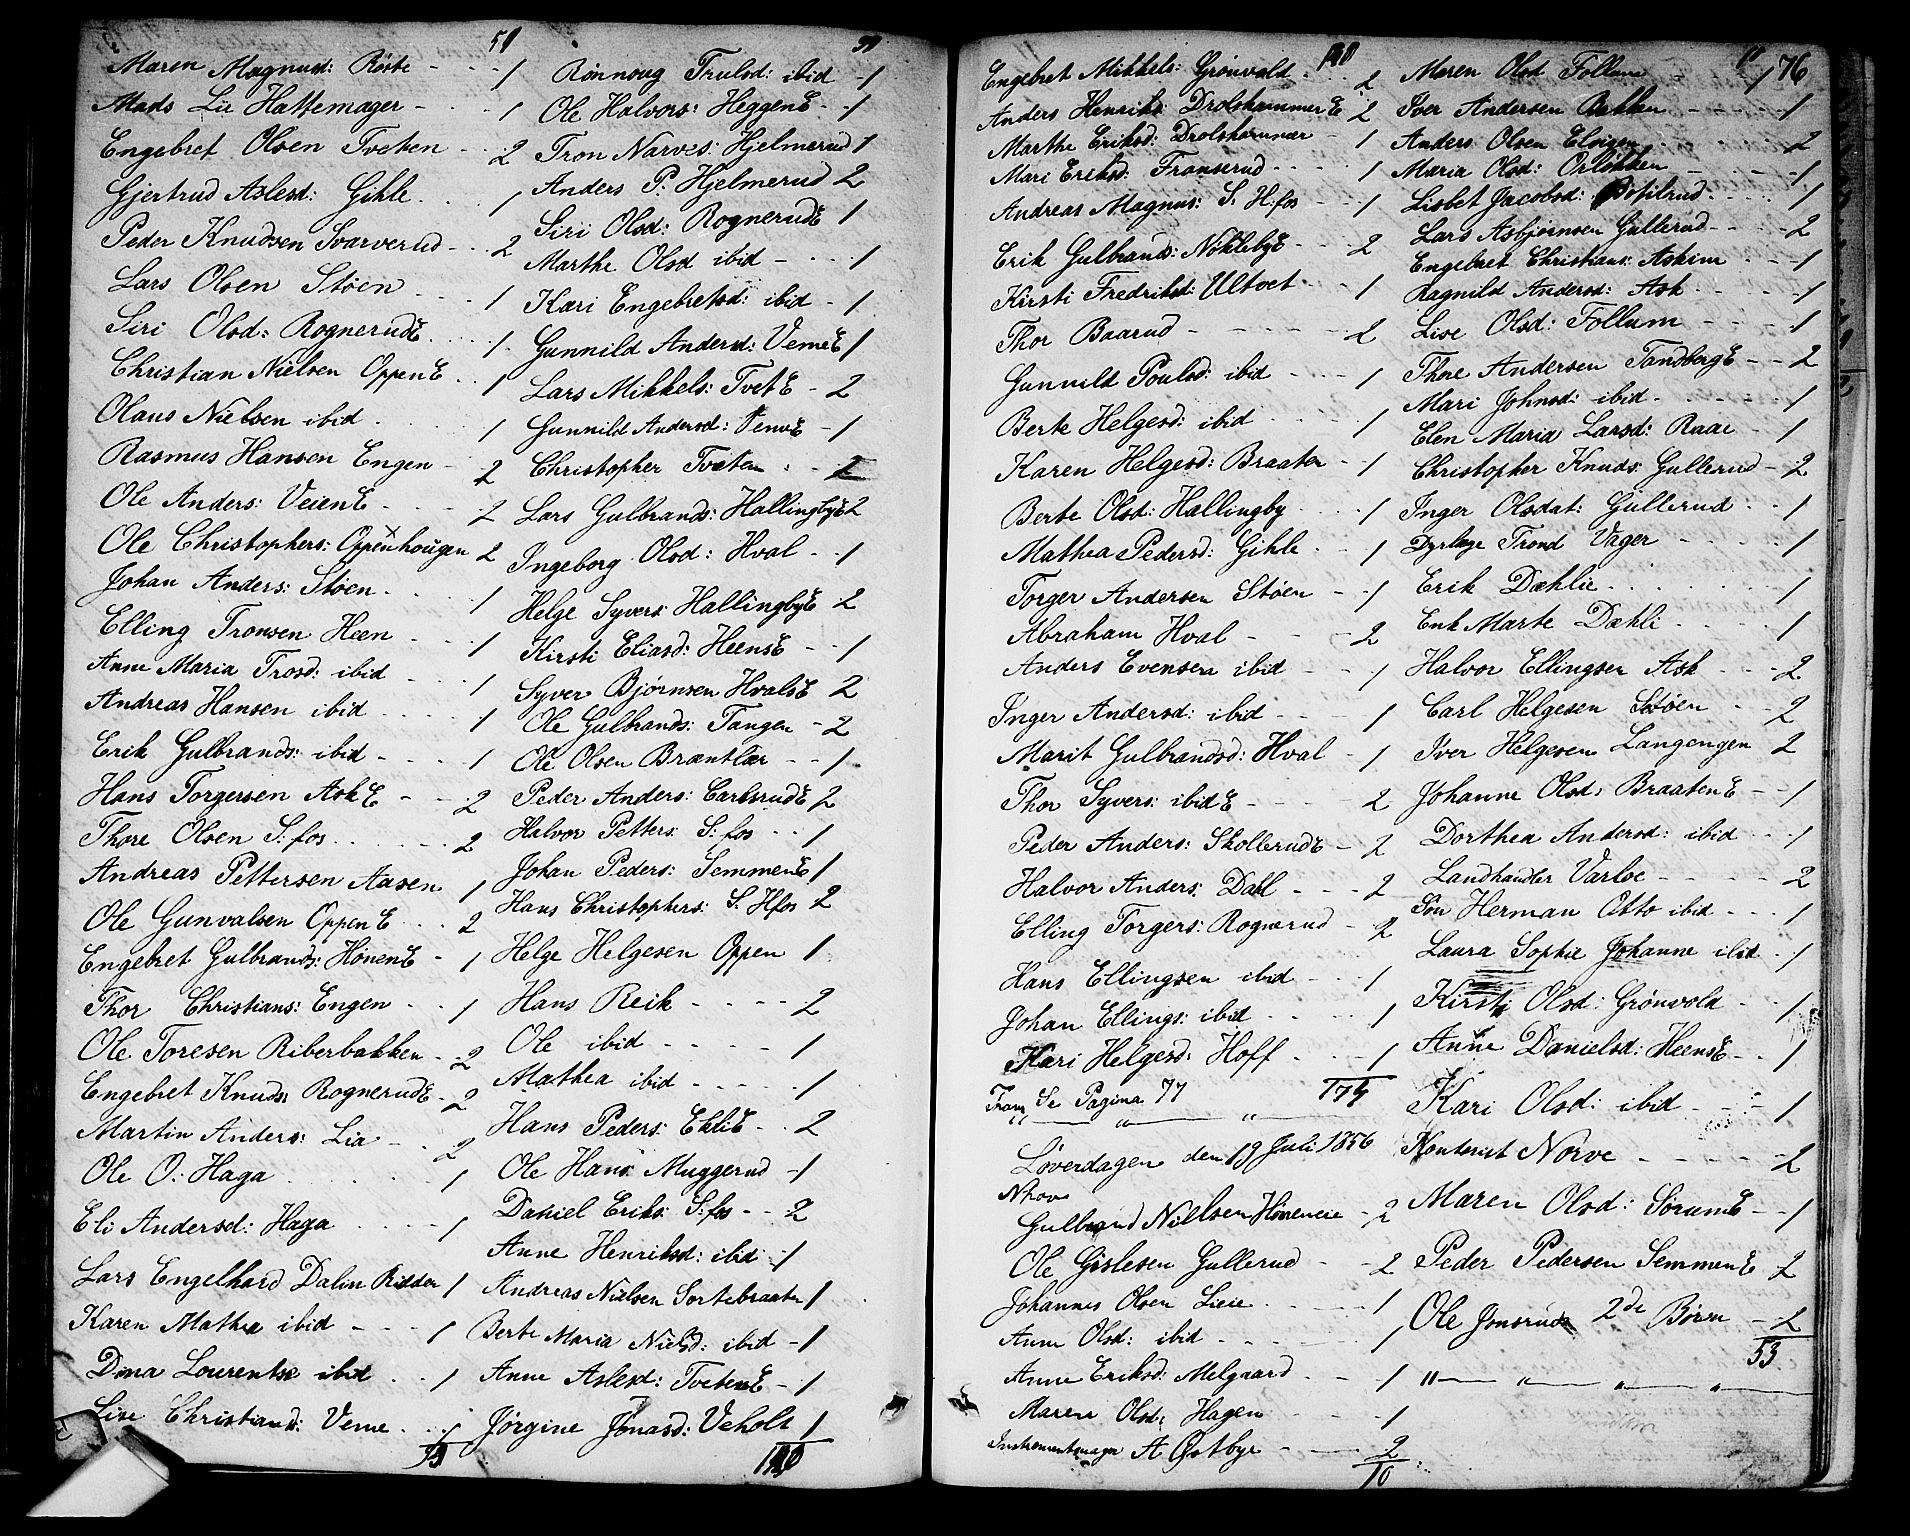 51
Maren Magnusd: Röste - - - 1
Mads Lie Hattemager - - - 1
Engebret Olsen Tveten - - 2
Gjertrud Aslesd: Gihle . . . 1
Peder Knudsen Svarverud - - 2
Lars Olsen Stöen - - - 1
Siri Olsd: RognerudE . . . 1
Christian Nielsen OppenE . . 1
Olaus Nielsen ibid . . . 1
Rasmus Hansen Engen - 2
Ole Anders: VeienE - - - 2
Ole Christophers: Oppenhougen 2
Johan Anders: Stöen . . . 1
Elling Tronsen Heen - - - 1
Anne Maria Trosd: ibid - - - 1
Andreas Hansen ibid - - - 1
Erik Gulbrands: ibid - - - 1
Hans Torgersen AskE - - 2
Thore Olsen S: fos . . . . 2
Andreas Pettersen Aasen 1
Ole Gunvalsen OppenE . . . 2
Engebret Gulbrands: HönenE - 1
Thor Christians: Engen - - 1
Ole Toresen Riberbakken - - 2
Engebret Knuds: RognerudE - 2
Martin Anders: Lia - - 2
Ole O: Haga . . . . 1
Eli Andersd: Haga - - - 1
Lars Engelhard Dalin Ridder 1
Karen Mathea ibid - - - 1
Dina Lourentse ibid . . 1
Lise Christiansd: Veme . . . 1
Rönnoug Trulsd: ibid - 1
Ole Halvors: HeggenE - - 1
Tron Narves: Hjelmerud 1
Anders P: Hjelmerud 2
Siri Olsd: RognerudE 1
Marthe Olsd ibid - - - 1
Kari Engebretsd: ibid - 1
Gunnild Andersd: VemeE 1
Lars Mikkels: TvetE - 2
Gunnild Andersd: VemeE - 1
Christopher Tveten . . 2
Lars Gulbrands: HallingbyE 2
Ingeborg Olsd: Hval - - 1
Helge Syvers: HallingbyE 2
Kirsti Eliasd: HeensE - - 1
Syver Björnsen HvalsE 2
Ole Gulbrands: Tangen - 2
Ole Olsen Bræntlær - - 1
Peder Anders: CarlsrudE 2
Halvor Petters: S: fos - - 1
Johan Peders: SemmenE 1
Hans Christophers: S. Hfos 2
Helge Helgesen Oppen 1
Hans Reik - - - - 2
Ole ibid - - - - 1
Mathea ibid - - - - 1
Hans Peders: EkliE - - 2
Ole Hans: Muggerud - 1
Daniel Eriks: S: fos - - 2
Anne Henriksd: ibid - 1
Andreas Nielsen Sortebraaten 1
Berte Maria Nielsd: ibid - 1
Anne Aslesd: TvetenE - 1
Jörgine Jonasd: Veholt 1
Engebret Mikkels: Grönvold . . . 2
Anders Henriks: DrolshammerE 2
Marthe Eriksd: Drolshammer - 1
Mari Eriksd: Franserud - - - 1
Andreas Magnus: S. H.fos - - 1
Erik Gulbrands: NöklebyE - - - 2
Kirsti Fredriksd: Ultvet - - - 1
Thor Baarud - - - - - 2
Gunnild Poulsd: ibid - - - 1
Berte Helgesd: ibid . . . . 1
Karen Helgesd: Braaten - 1
Berte Olsd: Hallingby . . . 1
Mathea Pedersd: Gihle - - 1
Torger Andersen Stöen - - 1
Abraham Hval - - - - 2
Anders Evensen ibid - - - 1
Inger Andersd: ibid - - - 1
Marit Gulbrandsd: Hval - 1
Thor Syvers: ibidE - - - - 2
Peder Anders: SkollerudE - 2
Halvor Anders: Dall - - - 2
Elling Torgers: Rognerud - 2
Hans Ellingsen ibid - - - 1
Johan Ellings: ibid - - - - 1
Kari Helgesd: Hoff . . . 1
Se Pagina 77
Löverdagen den 19 Juli 1856
Gulbrand Nielsen Höneneie - 2
Ole Gislesen Gullerud - - 2
Johannes Olsen Lieie . - - - 1
Anne Olsd: ibid - - - - 1
Anne Eriksd: Melgaard - - - 1
Maren Olsd: Hagen - - - 1
Instrumentmager A Østbye - - - 2
10
76
Maren Olsd Follum - - 1
Iver Andersen Bakken - - - 1
Anders Olsen Elvigen . . . 2
Maria Olsd: Orlökken - - - 1
Lisbet Jacobsd: . . . . 1
Lars Asbjörnsen Gullerud - - - 2
Engebret Christians: Askim - - - 1
Ragnild Andersd: Ask - - - 1
Lise Olsd: Follum - - - 1
Thore Andersen TandbergE - - 2
Mari Johnsd: ibid . - - - 1
Elen Maria Larsd: Raae - 1
Christopher Knuds: Gullerud - 2
Inger Olsdat: Gullerud - - 1
Dyrlæge Trond Vager - - - 1
Erik Dæhlie . . . . 1
Enk Marte Dæhli - - - 1
Halvor Ellingsen Ask - - - 2
Carl Helgesen Stöen - - 2
Iver Helgesen Langengen 2
Johanne Olsd: BraatenE - - 1
Dorthea Andersd: ibid - - - 1
Landhandler Varloe - - - - 2
Sön Herman Otto ibid - - - 1
Laura Sophie Johanne ibid . 1
Kirsti Olsd: Grönvold - - 1
Anne Danielsd: HeensE - - 1
Kari Olsd: ibid - - - 1
Kontorist Norve - - - - 2
Maren Olsd: SörumE - - 1
Peder Pedersen SemmenE 2
Ole Jonsrud 2de Börn - 2
53